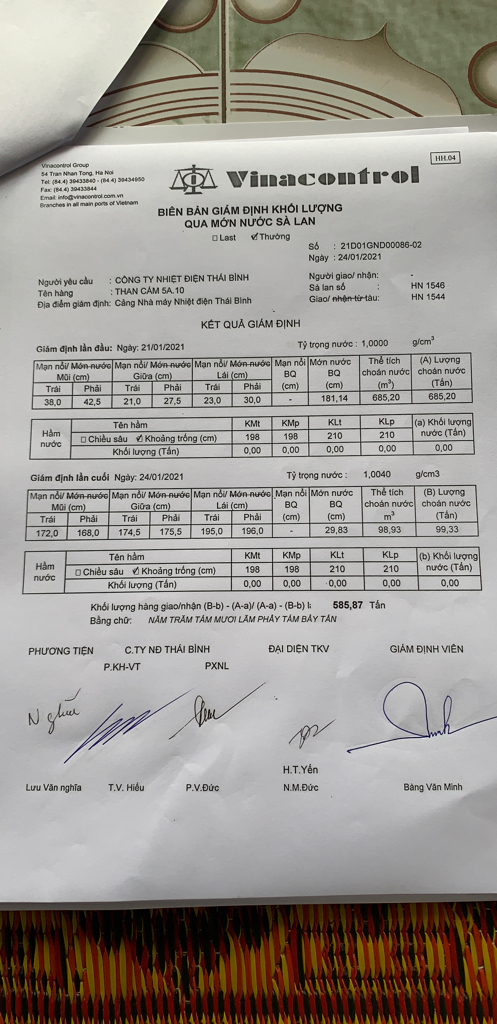 Vinacontrol Group
54 Tran Nhan Tong, Ha Noi
Tel: (84.4) 39433840 - (84.4) 39434950
Fax: (84.4) 39433844
Email: info@vinacontrol.com.vn
Branches in all main ports of Vietnam
Vinacontrol
HH.04
BIÊN BẢN GIÁM ĐỊNH KHỐI LƯỢNG
QUA MỚN NƯỚC SÀ LAN
□ Last ☑ Thường
Số : 21D01GND00086-02
Ngày : 24/01/2021
Người yêu cầu : CÔNG TY NHIỆT ĐIỆN THÁI BÌNH
Người giao/ nhận: -
Tên hàng : THAN CÁM 5A.10
Sà lan số : HN 1546
Địa điểm giám định: Cảng Nhà máy Nhiệt điện Thái Bình
Giao/ nhận từ tàu: HN 1544
KẾT QUẢ GIÁM ĐỊNH
Giám định lần đầu: Ngày: 21/01/2021 Tỷ trọng nước : 1,0000 g/cm³
Mạn nổi/ Mớn nước Mạn nổi/ Mớn nước Mạn nổi/ Mớn nước Mạn nổi Mớn nước Thể tích (A) Lượng
Mũi (cm) Giữa (cm) Lái (cm) BQ BQ choán nước choán nước
Trái Phải Trái Phải Trái Phải (cm) (cm) (m³) (Tấn)
38,0 42,5 21,0 27,5 23,0 30,0 - 181,14 685,20 685,20
Hầm nước Tên hầm KMt KMp KLt KLp (a) Khối lượng nước (Tấn)
□ Chiều sâu ☑ Khoảng trống (cm) 198 198 210 210
Khối lượng (Tấn) 0,00 0,00 0,00 0,00 0,00
Giám định lần cuối Ngày: 24/01/2021 Tỷ trọng nước : 1,0040 g/cm3
Mạn nổi/ Mớn nước Mạn nổi/ Mớn nước Mạn nổi/ Mớn nước Mạn nổi Mớn nước Thể tích (B) Lượng
Mũi (cm) Giữa (cm) Lái (cm) BQ BQ choán nước choán nước
Trái Phải Trái Phải Trái Phải (cm) (cm) m³ (Tấn)
172,0 168,0 174,5 175,5 195,0 196,0 - 29,83 98,93 99,33
Hầm nước Tên hầm KMt KMp KLt KLp (b) Khối lượng nước (Tấn)
□ Chiều sâu ☑ Khoảng trống (cm) 198 198 210 210
Khối lượng (Tấn) 0,00 0,00 0,00 0,00 0,00
Khối lượng hàng giao/nhận (B-b) - (A-a)/ (A-a) - (B-b) l: 585,87 Tấn
Bằng chữ: NĂM TRĂM TÁM MƯƠI LĂM PHẨY TÁM BẢY TẤN
PHƯƠNG TIỆN C.TY NĐ THÁI BÌNH ĐẠI DIỆN TKV GIÁM ĐỊNH VIÊN
P.KH-VT PXNL
Nghĩa
H.T.Yến
Lưu Văn nghĩa T.V. Hiếu P.V.Đức N.M.Đức Bàng Văn Minh